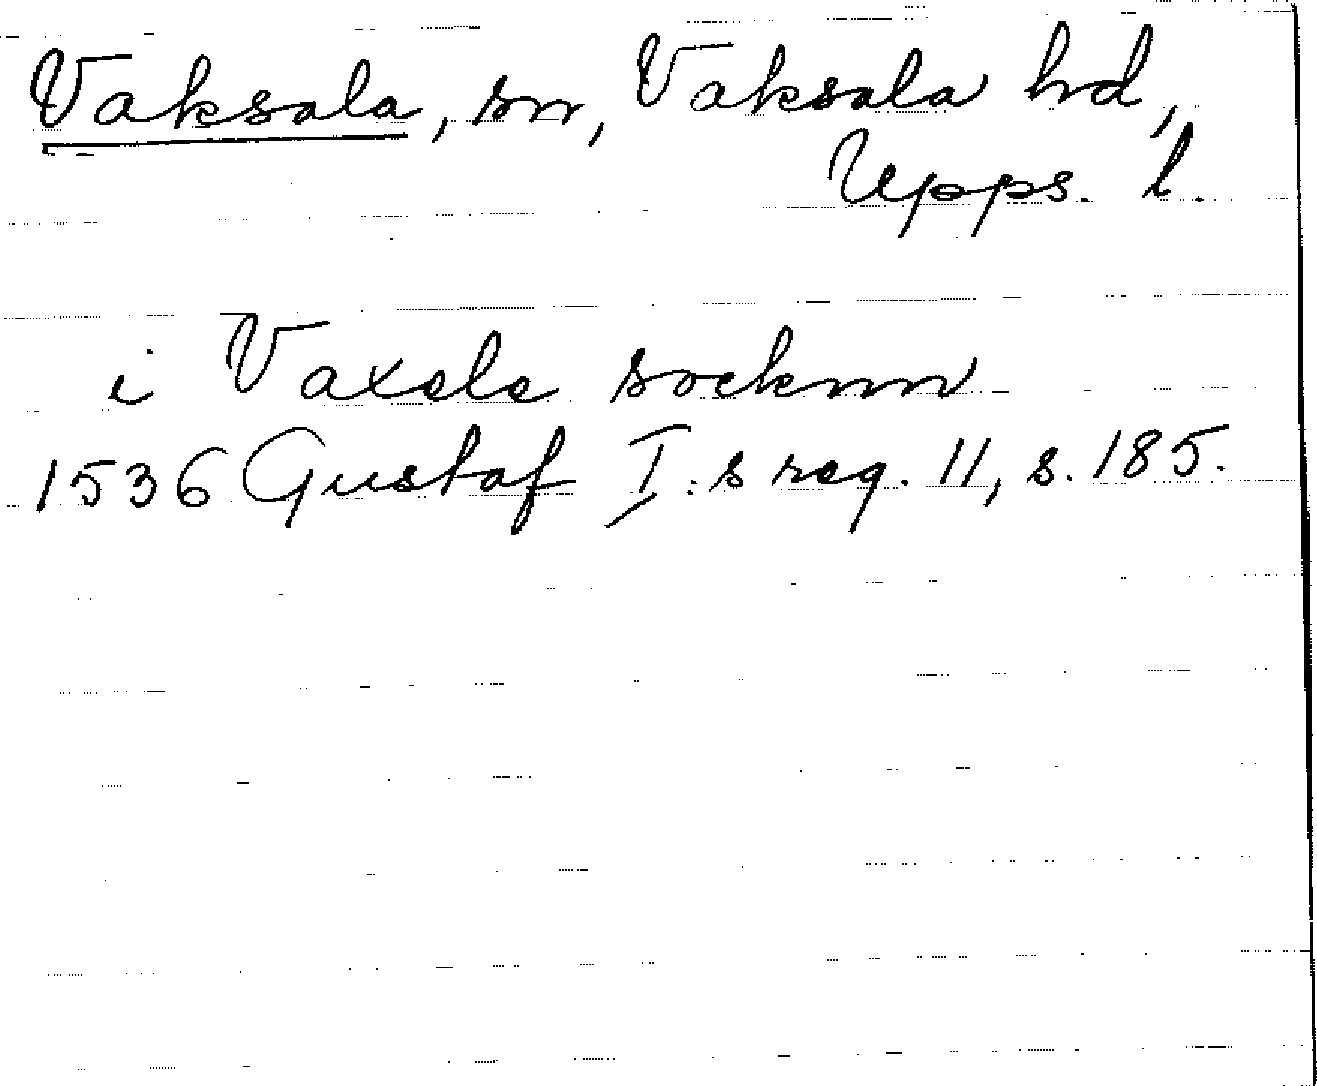 Vaksala, sn, Vaksala hd,
Upps. l.
i Vaxele socknn
1536 Gustaf I:s reg. 11, s. 185.